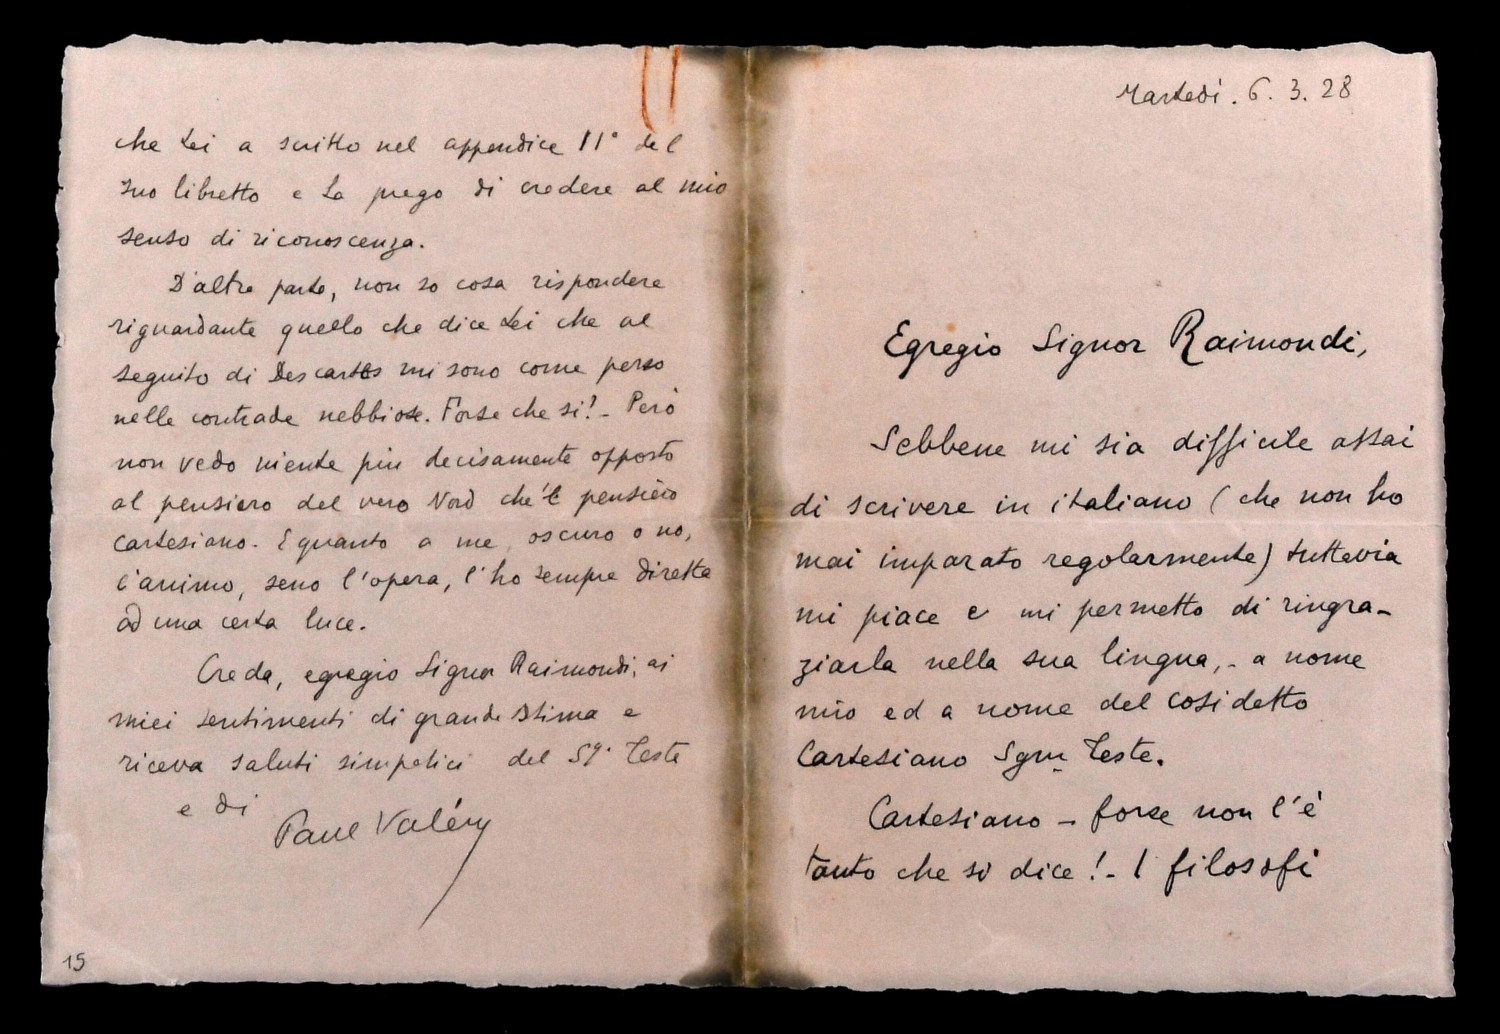 Martedì. 6. 3. 28
Egregio Signor Raimondi,
Sebbene mi sia difficile assai
di scrivere in italiano (che non ho
mai imparato regolarmente) tuttavia
mi piace e mi permetto di ringra-
ziarla nella sua lingua,- a nome
mio ed a nome del cosidetto
Cartesiano Sgnr Teste.
Cartesiano - forse non l'è
tanto che si dice! - I filosofi
che Lei a scritto nel appendice II° del
suo libretto e La prego di credere al mio
senso di riconoscenza.
D'altra parte, non so cosa rispondere
riguardante quello che dice Lei che al
seguito di Descartes mi sono come perso
nelle contrade nebbiose. Forse che si? - Però
non vedo niente piu decisamente opposto
al pensiero del vero Nord che'l pensiero
cartesiano. E quanto a me, oscuro o no,
l'animo, seno l'opera, l'ho sempre diretta
ad una certa luce.
Creda, egregio Signor Raimondi, ai
miei sentimenti di grande stima e
riceva saluti simpatici del Sgr Teste
e di
Paul Valéry
15